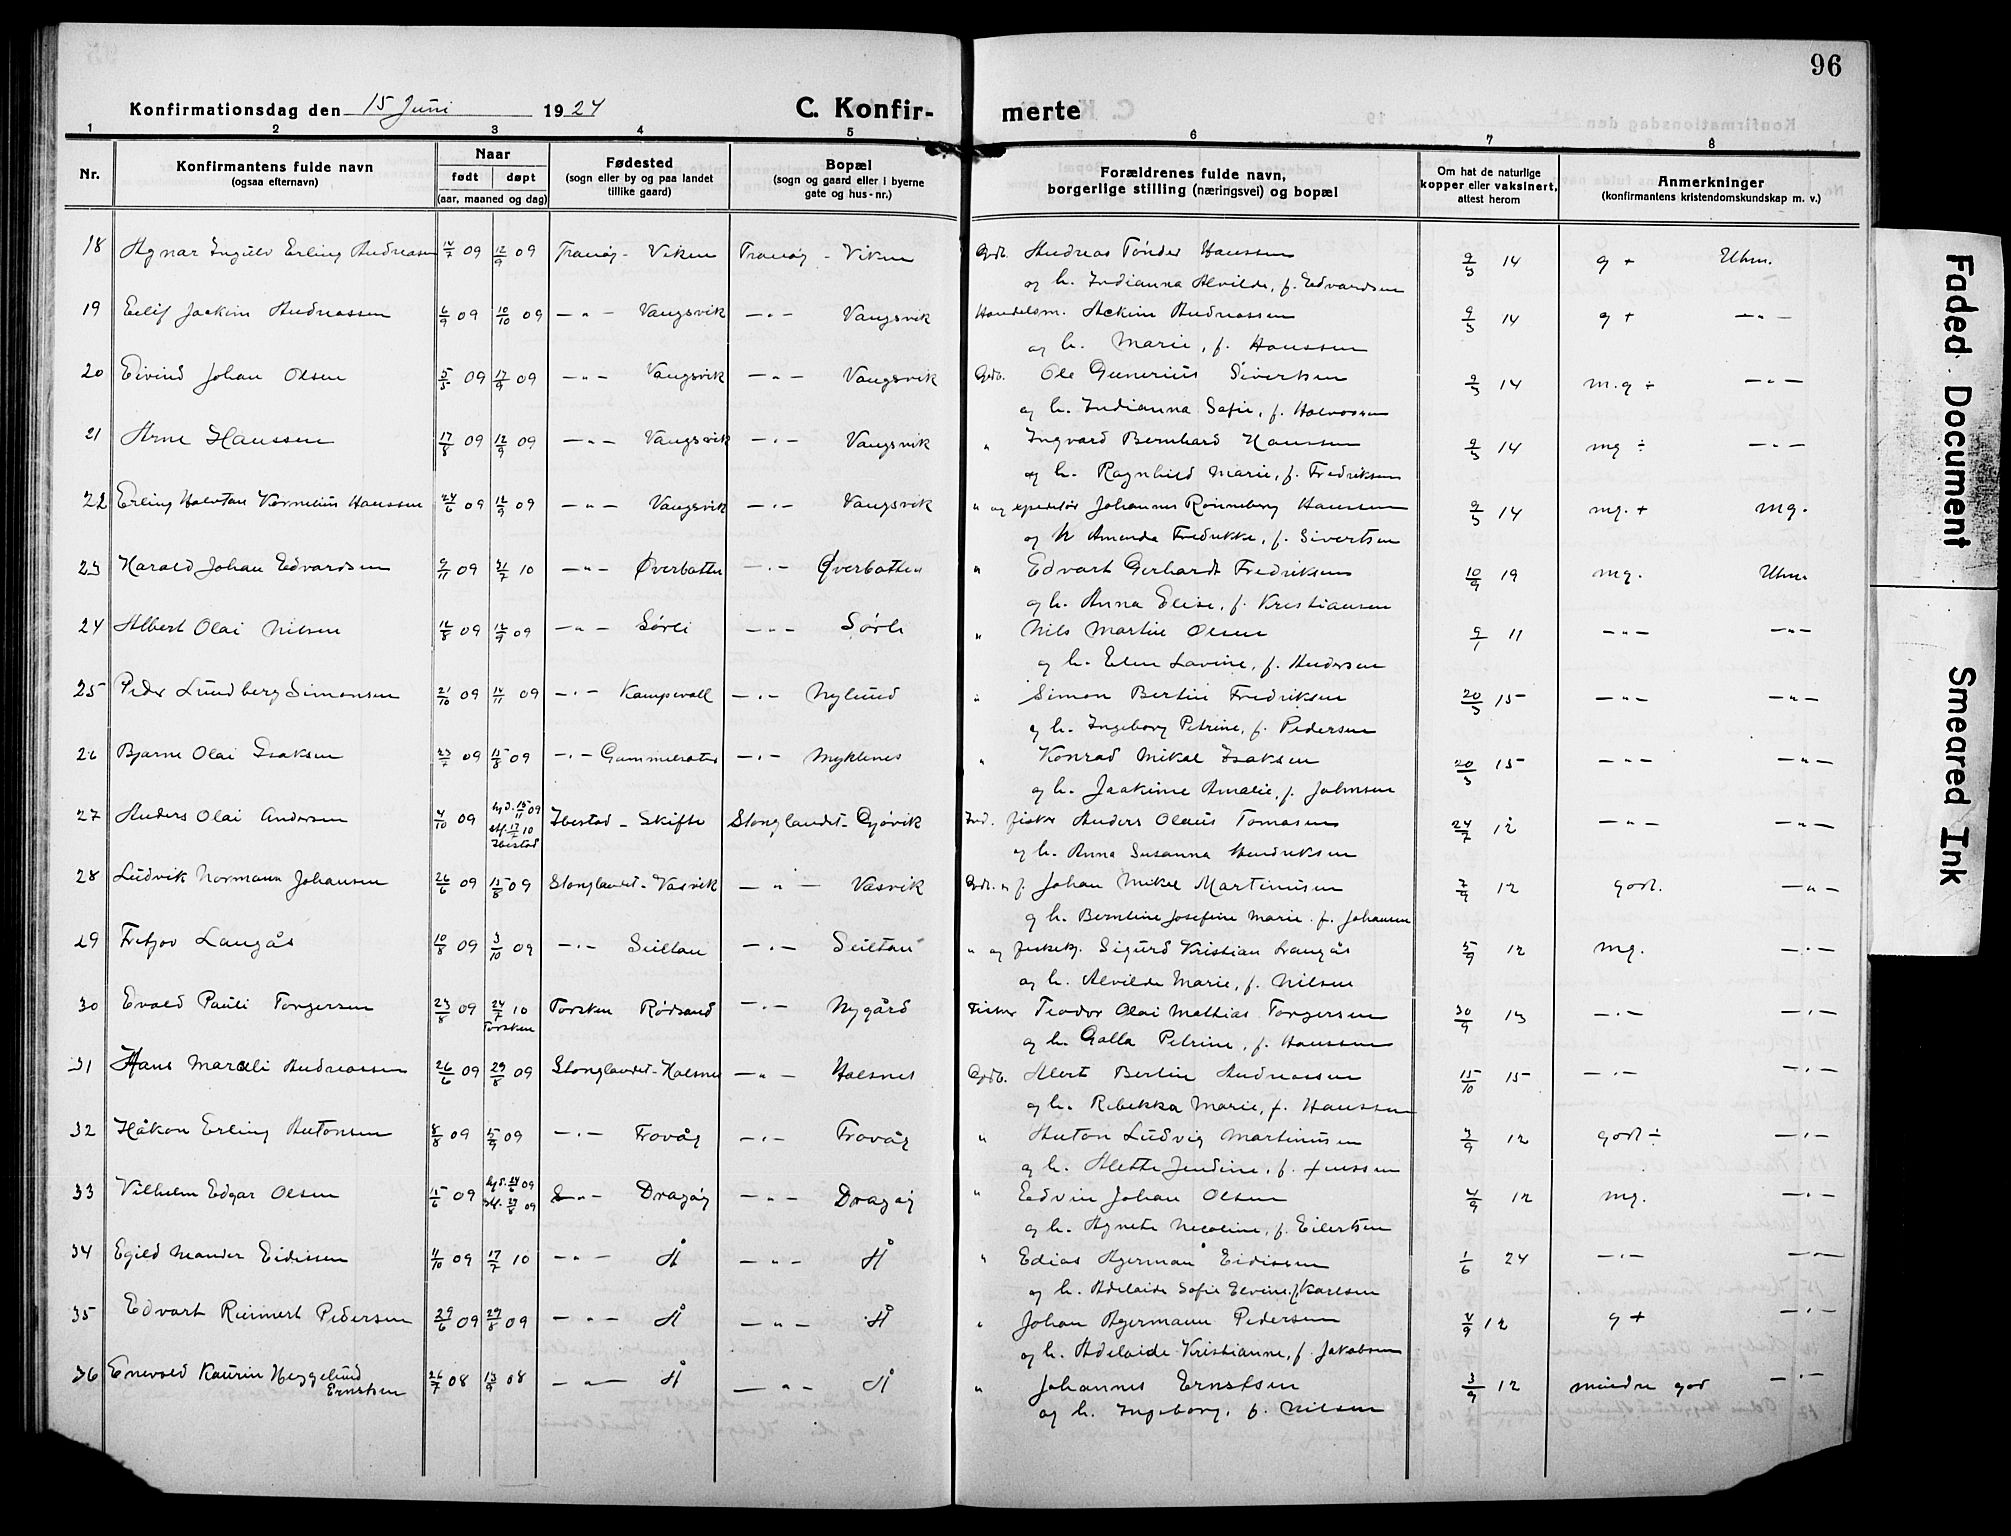 96
Konfirmationsdag den 15 Juni 1924
C. Konfir-
merte
1 2 3 4 5 6 7 8
Nr.
Konfirmantens fulde navn
(ogsaa efternavn)
Naar
født døpt
(aar, maaned og dag)
Fødested
(sogn eller by og paa landet
tillike gaard)
Bopæl
(sogn og gaard eller i byerne
gate og hus-nr.)
Forældrenes fulde navn,
borgerlige stilling (næringsvei) og bopæl
Om hat de naturlige
kopper eller vaksinert,
attest herom
Anmerkninger
(konfirmantens kristendomskundskap m. v.)
18 Agnar Ingulv Erling Andreasen 14/7 09 12/9 09 Tranøy - Viken Tranøy - Viken Gdb. Andreas Tønder Hanssen 9/5 14 g + Uhm.
og h. Indianna Alvilde, f. Edvardsen
19 Eilif Joakim Andreassen 6/9 09 10/10 09 — " — Vangsvik — " — Vangsvik Handelsm. Ackim Andreassen 9/5 14 g + — " —
og h. Marie, f. Hanssen
20 Eivind Johan Olsen 5/5 09 17/9 09 — " — Vangsvik — " — Vangsvik Gdb. Ole Gunerius Sivertsen 9/5 14 m.g ÷ — " —
og h. Indianna Sofie, f. Halvorsen
21 Arne Hanssen 17/8 09 12/9 09 — " — Vangsvik — " — Vangsvik " Ingvard Bernhard Hanssen 9/5 14 mg ÷ — " —
og h. Ragnhild Marie, f. Fredriksen
22 Erling Halvtan Kornelius Hanssen 24/6 09 12/9 09 — " — Vangsvik — " — Vangsvik " og expeditør Johannes Rønneberg Hanssen 9/5 14 mg. + mg.
og h Amanda Fredrikke, f. Sivertsen
23 Harald Johan Edvardsen 9/11 09 31/7 10 — " — Øverbotten — " — Øverbotten " Edvart Gerhardt Fredriksen 10/9 19 mg. Uhm.
og h. Anna Elise, f. Kristiansen
24 Albert Olai Nilsen 16/8 09 12/9 09 — " — Sørli — " — Sørli " Nils Martin Olsen 9/1 11 — " — — " —
og h. Elen Lavine, f. Andersen
25 Peder Lundberg Simonsen 21/10 09 14/11 09 — " — Kampevoll — " — Nylund " Simon Bertin Fredriksen 20/5 15 — " — — " —
og h. Ingeborg Petrine, f. Pedersen
26 Bjarne Olai Isaksen 23/7 09 15/8 09 — " — — " — Myklenes " Konrad Mikal Isaksen 20/5 15 — " — — " —
og h. Joakime Amalie, f. Johnsen
27 Anders Olai Andersen 4/10 09 hjd. 15/11 09 Ibestad - Skifte Stonglandet - Gjøvik Ind. fisker Anders Olaus Tomasen 24/7 12 — " — — " —
stf. 17/7 10
Ibestad
og h. Anna Susanna Hendriksen
28 Ludvik Normann Johansen 26/6 09 15/8 09 Stonglandet - Vasvik — " — Vasvik Gdb. og f. Johan Mikal Martinusen 7/9 12 godt. — " —
og h. Berntine Josefine Marie f. Johansen
29 Fritjov Langås 10/8 09 3/10 09 — " — Sultan — " — Sultan " og fiskekj. Sigurd Kristian Langås 5/9 12 mg. — " —
og h. Alvilde Marie, f. Nilsen
30 Evald Pauli Torgersen 23/8 09 24/7 10 Torsken Rødsand — " — Nygård Fisker Teodor Olai Mathias Torgersen 30/9 13 — " — — " —
Torsken
og h. Galla Petrine, f. Hanssen
31 Hans Marceli Andreassen 26/6 09 29/8 09 Stonglandet - Halsnes — " — Halsnes Gdb. Alert Bertin Andreassen 15/10 15 — " — — " —
og h. Rebekka Marie, f. Hanssen
32 Håkon Erling Antonsen 8/8 09 5/9 09 — " — Trovåg — " — Trovåg " Anton Ludvig Martinusen 7/9 12 godt ÷ — " —
og h. Alette Jendine, f. Jenssen
33 Vilhelm Edgar Olsen 15/6 09 hjd. 24/6 09 — " — Dragøy — " — Dragøy " Edvin Johan Olsen 4/9 12 mg. — " —
stf. 29/8 09
og h. Agnete Nicoline, f. Eilertsen
34 Egild Meander Eidissen 11/10 09 17/7 10 — " — Å — " — Å " Edias Agerman Eidissen 1/6 24 — " — — " —
og h. Adelaide Sofie Elvine, f. Karlsen
35 Edvart Reimert Pedersen 29/6 09 29/8 09 — " — Å — " — Å " Johan Agermann Pedersen 4/9 12 g + — " —
og h. Adelaide Kristianne, f. Jakobsen
36 Enevold Kaurin Heggelund 26/7 08 13/9 08 — " — Å — " — Å " Johannes Ernstsen 3/9 12 mindre god — " —
Ernstsen
og h. Ingeborg, f. Nilsen
Faded Document
Smeared Ink